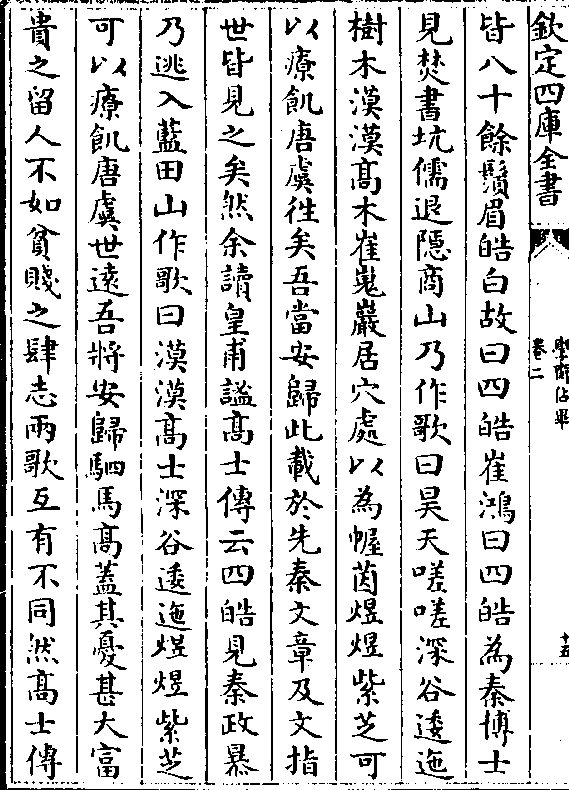 欽定四庫全書
卷二
十五
皆八十餘鬚眉皓白故曰四皓崔鴻曰四皓為秦博士
見焚書坑儒退隱商山乃作歌曰昊天嗟嗟深谷逶迤
樹木漠漠髙木崔嵬巖居穴處以為幄茵煜煜紫芝可
以療飢唐虞徃矣吾當安歸此載於先秦文章及文指
世皆見之矣然余讀皇甫謐髙士傳云四皓見秦政暴
乃逃入藍田山作歌曰漠漠髙士深谷逶迤煜煜紫芝
可以療飢唐虞世遠吾將安歸駟馬髙蓋其憂甚大富
貴之留人不如貧賤之肆志兩歌互有不同然髙士傳